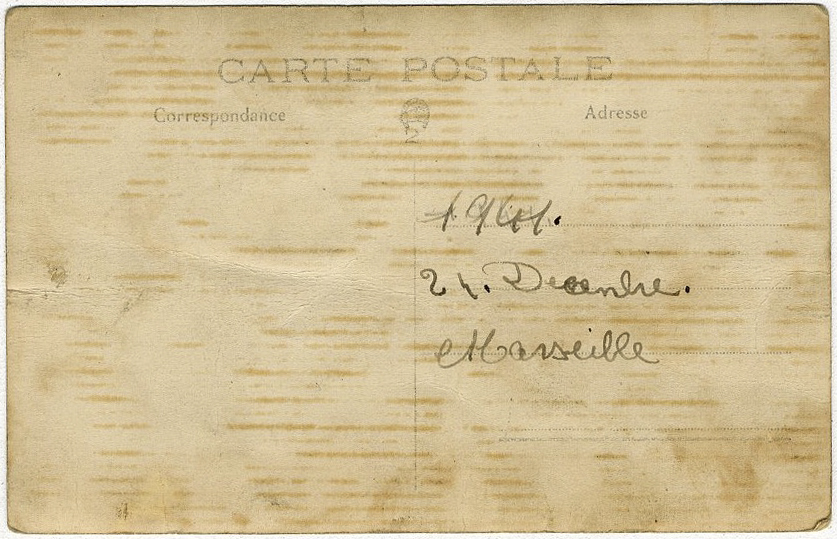 CARTE POSTALE
Correspondance
Adresse
24. Decembre.
Marseille